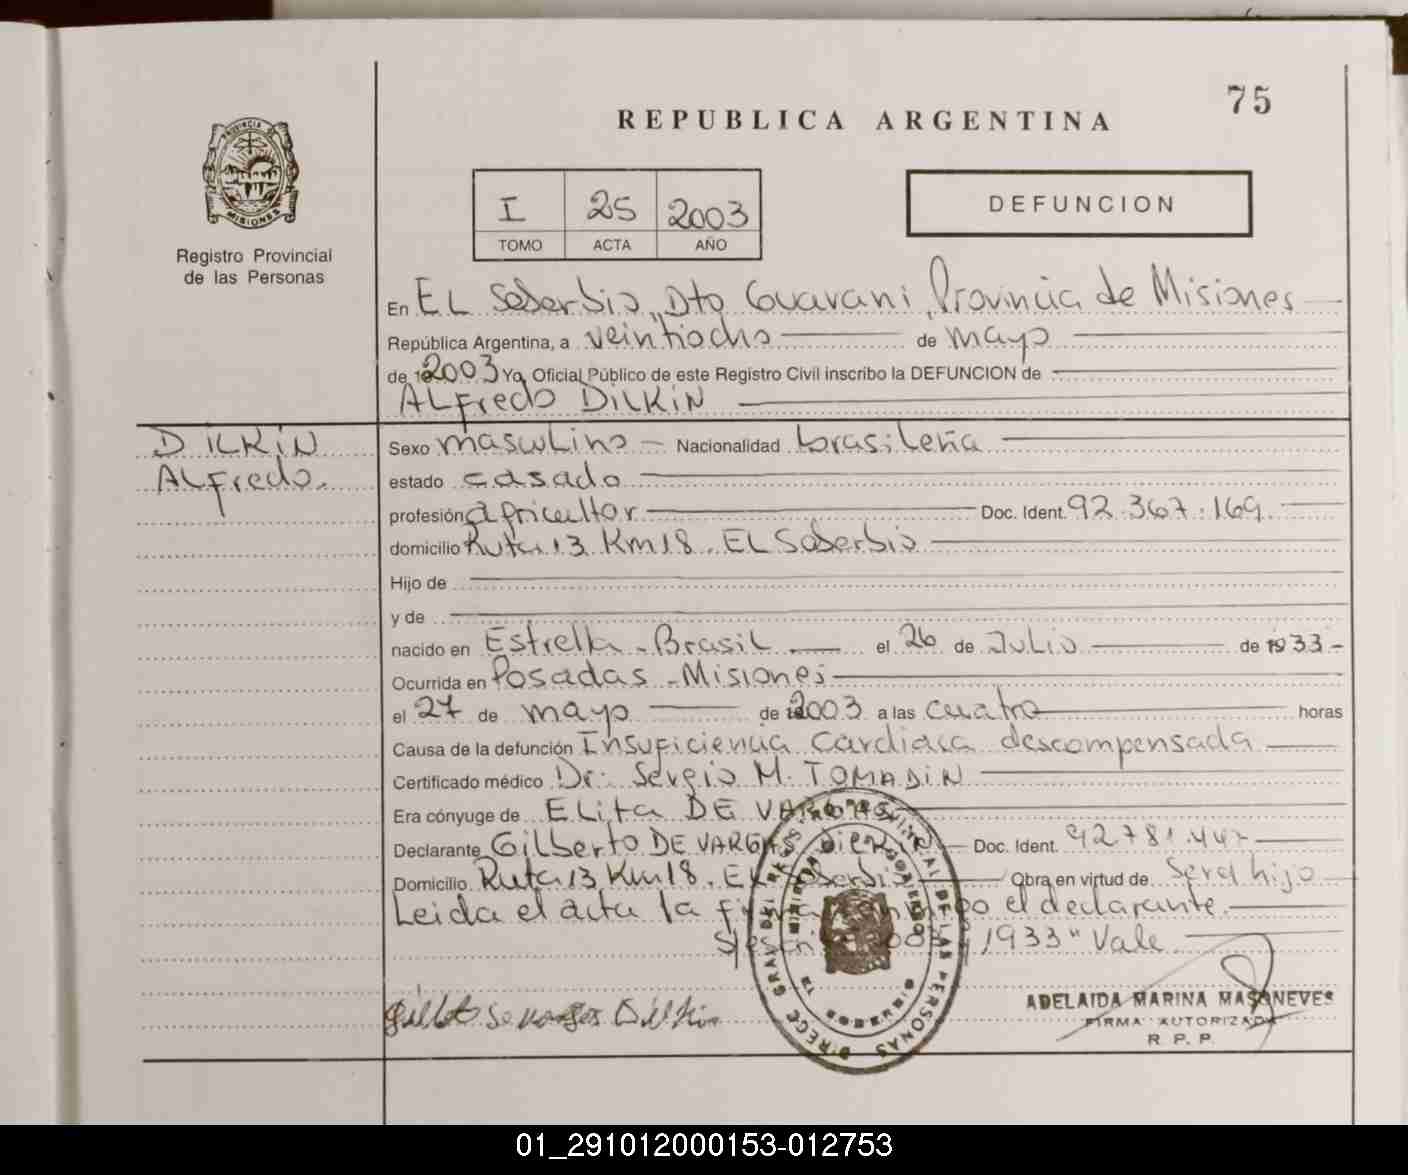 75
REPUBLICA ARGENTINA
PROVINCIA DE
MISIONES
Registro Provincial
de las Personas
I 25 2003
TOMO ACTA AÑO
DEFUNCION
En EL Soberbio, Dto Guarani, Provincia de Misiones
República Argentina, a veintiocho de mayo
de 2003 Yo, Oficial Público de este Registro Civil inscribo la DEFUNCION de
ALfredo DILKIN
DILKIN
ALfredo.
Sexo masculino - Nacionalidad brasileña
estado casado
profesión agricultor Doc. Ident. 92.367.169
domicilio Ruta 13 Km 18. EL Soberbio
Hijo de
y de
nacido en Estrella - Brasil el 26 de Julio de 1933-
Ocurrida en Posadas - Misiones
el 27 de mayo de 2003 a las cuatro horas
Causa de la defunción Insuficiencia cardiaca descompensada
Certificado médico Dr. Sergio M. TOMADIN
Era cónyuge de ELita DE VARGAS
Declarante GiLberto DE VARGAS DILKIN Doc. Ident. 92781.447
Domicilio Ruta 13 Km 18. EL Soberbio Obra en virtud de Ser el hijo
Leida el acta la firma conmigo el declarante.
1933" Vale
Gilberto de vargas Dilkin
DIREC. GRAL. DEL REG. PROVINCIAL DE LAS PERSONAS
MINISTERIO DE GOBIERNO
ADELAIDA MARINA MASSNEVES
FIRMA AUTORIZADA
R. P. P.
01_291012000153-012753